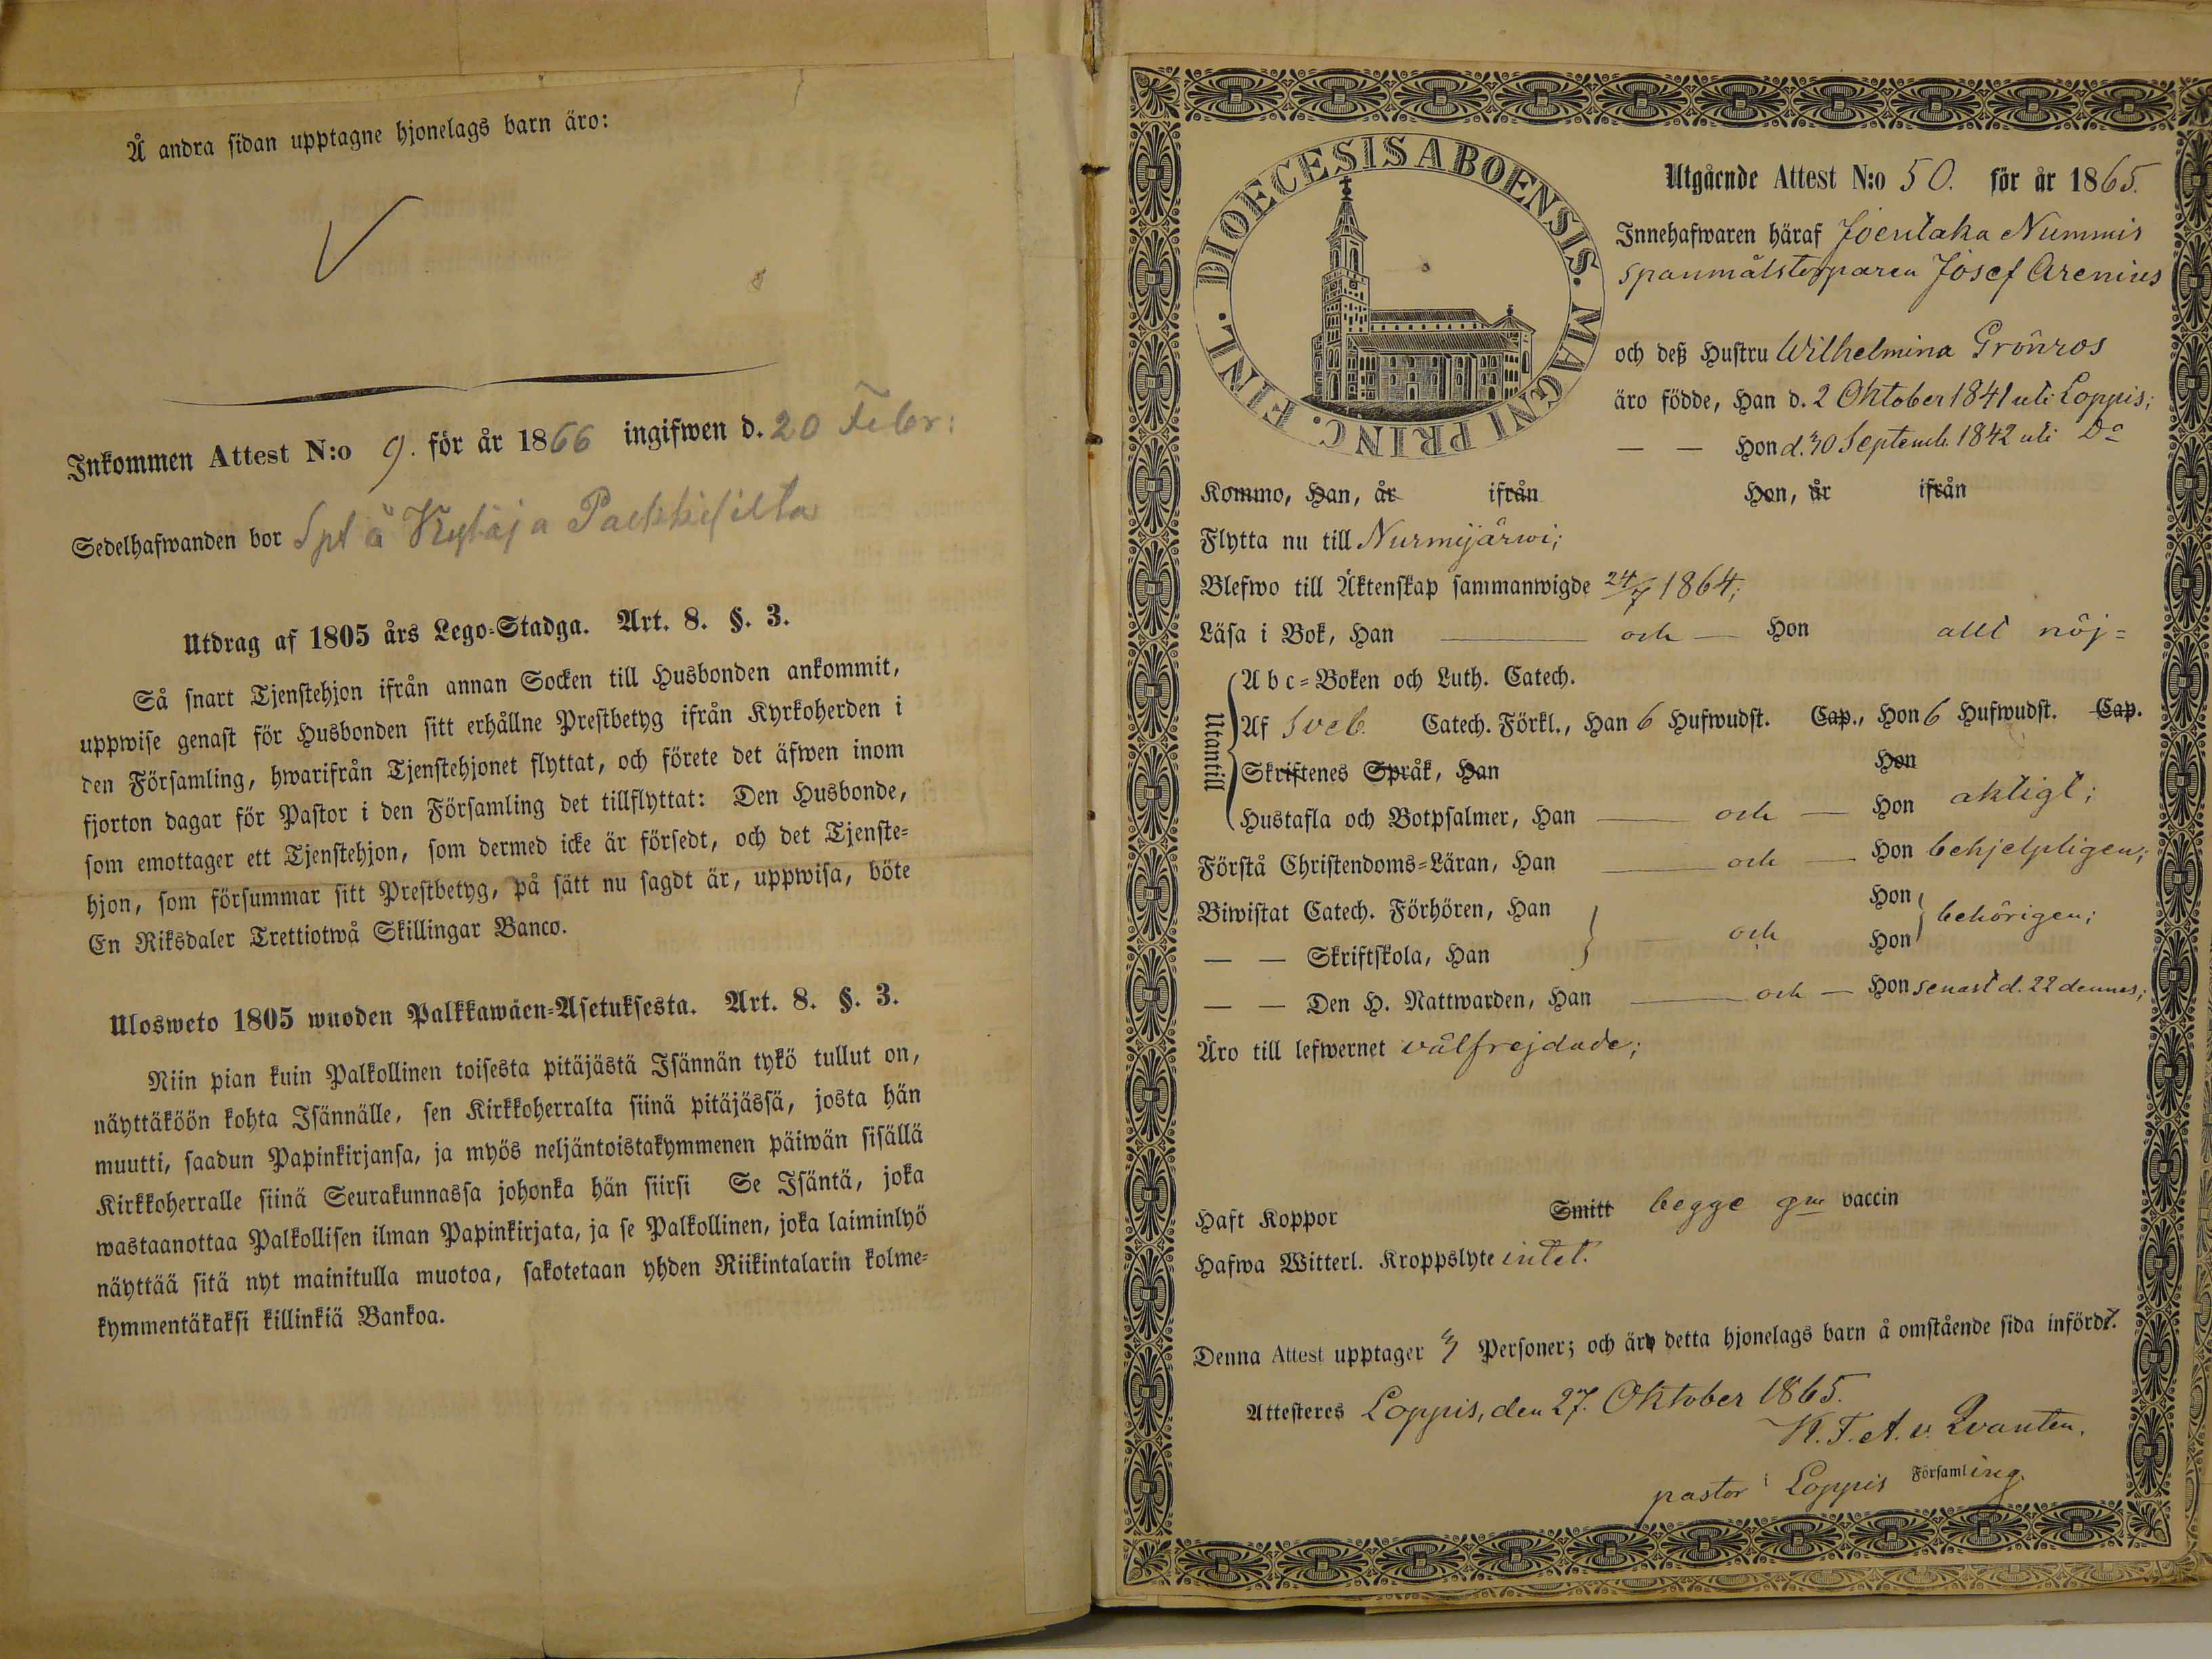 Å andra sidan upptagne hjonelags barn äro:
Inkommen Attest N:o 9. för år 1866 ingifwen d. 20 Febr:
Sedelhafwanden bor Spt å Kytäj a
Utdrag af 1805 års Lego-Stadga. Art. 8. §. 3.
Så snart Tjenstehjon ifrån annan Socken till Husbonden ankommit,
uppwise genast för Husbonden sitt erhållne Prestbetyg ifrån Kyrkoherden i
den Församling, hwarifrån Tjenstehjonet flyttat, och förete det äfwen inom
fjorton dagar för Pastor i den Församling det tillflyttat: Den Husbonde,
som emottager ett Tjenstehjon, som dermed icke är försedt, och det Tjenste-
hjon, som försummar sitt Prestbetyg, på sätt nu sagdt är, uppwisa, böte
En Riksdaler Trettiotwå Skillingar Banco.
Ulosweto 1805 wuoden Palkkawäen-Asetuksesta. Art. 8. §. 3.
Niin pian kuin Palkollinen toisesta pitäjästä Isännän tykö tullut on,
näyttäköön kohta Isännälle, sen Kirkkoherralta siinä pitäjässä, josta hän
muutti, saadun Papinkirjansa, ja myös neljäntoistakymmenen päiwän sisällä
Kirkkoherralle siinä Seurakunnassa johonka hän siirsi Se Isäntä, joka
wastaanottaa Palkollisen ilman Papinkirjata, ja se Palkollinen, joka laiminlyö
näyttää sitä nyt mainitulla muotoa, sakotetaan yhden Riikintalarin kolme-
kymmentäkaksi killinkiä Bankoa.
DIOECESIS ABOENSIS. MAGNI PRINC. FINL.
Utgående Attest N:o 50. för år 1865.
Innehafwaren häraf Joentaka Nummis
spanmålstorparen Josef Arenius
och deß Hustru Wilhelmina Grönros
äro födde, Han d. 2 Oktober 1841 uti Loppis;
— — Hon d. 30 Septemb. 1842 uti Do
Kommo, Han, år ifrån Hon, år ifrån
Flytta nu till Nurmijärwi;
Blefwo till Äktenskap sammanwigde 24/7 1864;
Läsa i Bok, Han — och — Hon allt nöj=
Utantill
Abc=Boken och Luth. Catech.
Af Sveb. Catech. Förkl., Han 6 Hufwudst. Cap., Hon 6 Hufwudst. Cap.
Skriftenes Språk, Han Hon
Hustafla och Botpsalmer, Han — och — Hon aktigt;
Förstå Christendoms=Läran, Han — och — Hon behjelpligen;
Biwistat Catech. Förhören, Han Hon
— och behörigen;
— — Skriftskola, Han Hon
— — Den H. Nattwarden, Han — och — Hon senast d. 22 dennes;
Äro till lefwernet välfrejdade;
Haft Koppor Smitt begge gm vaccin
Hafwa Witterl. Kroppslyte intet.
Denna Attest upptager 3 Personer; och äro detta hjonelags barn å omstående sida infördt.
Attesteres Loppis, den 27. Oktober 1865.
K. F. A. v. Qvanten.
pastor i Loppis Församling.